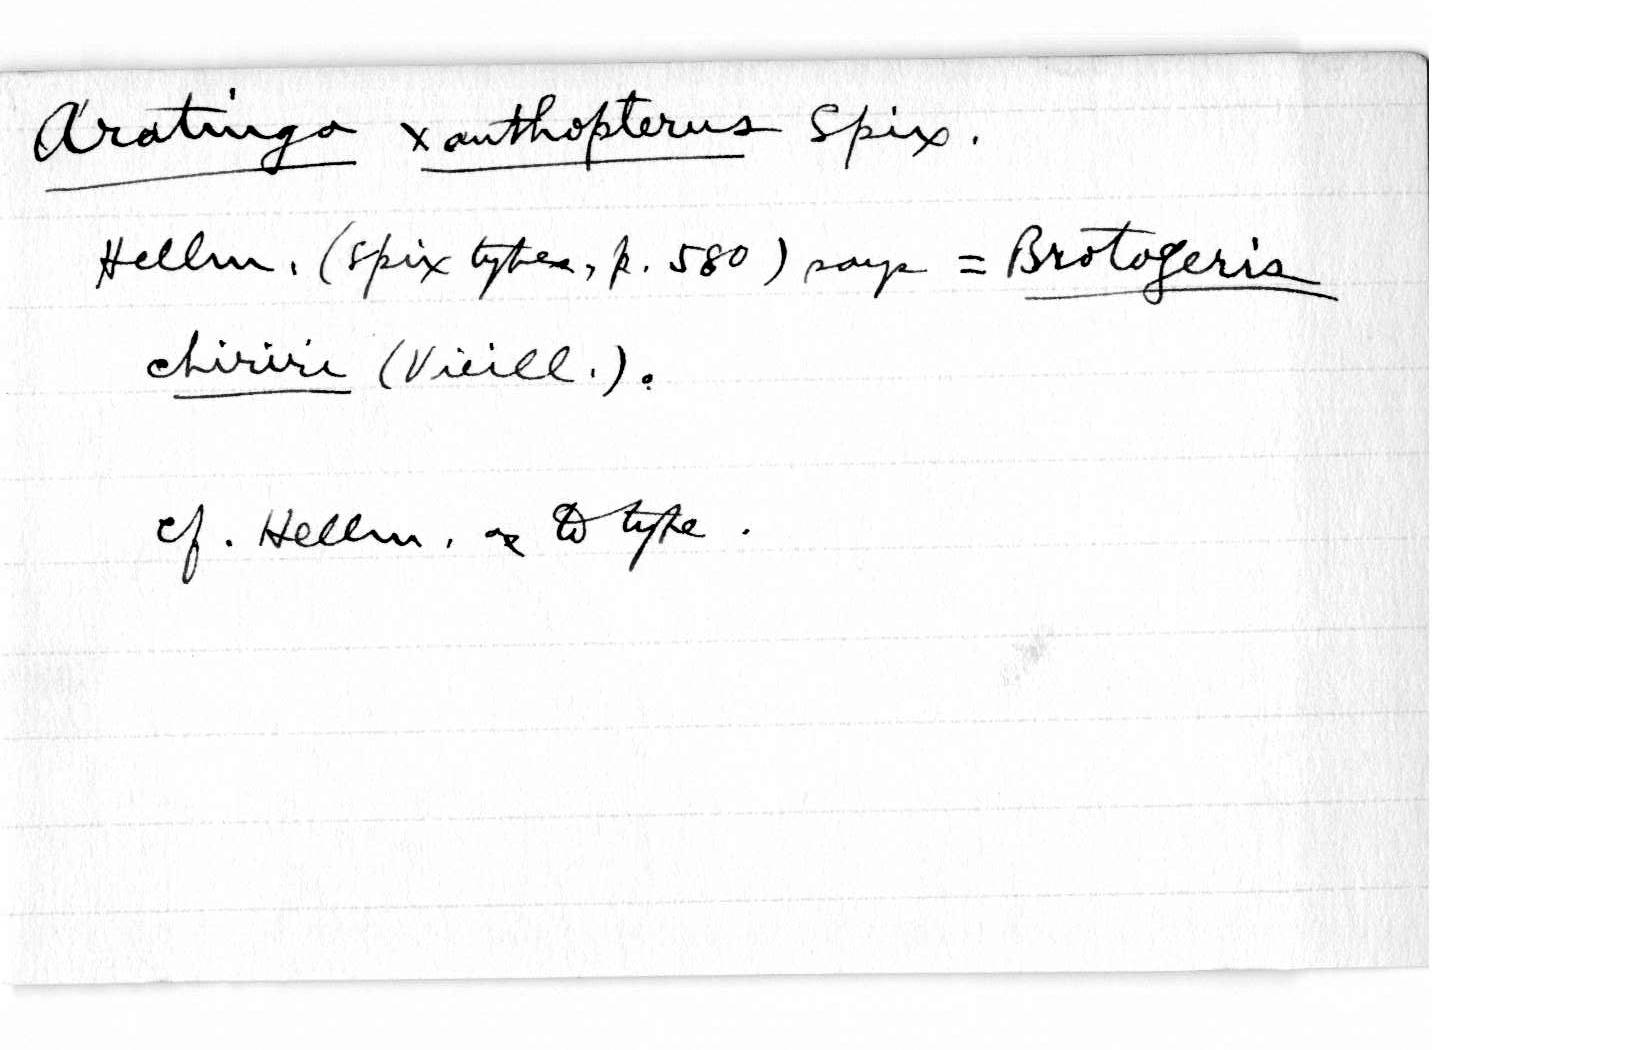 Aratinga xanthopterus Spix.
Hellm. (Spix types, p. 580) says = Brotogeris
chiriri (Vieill.).
cf. Hellm. as to type.